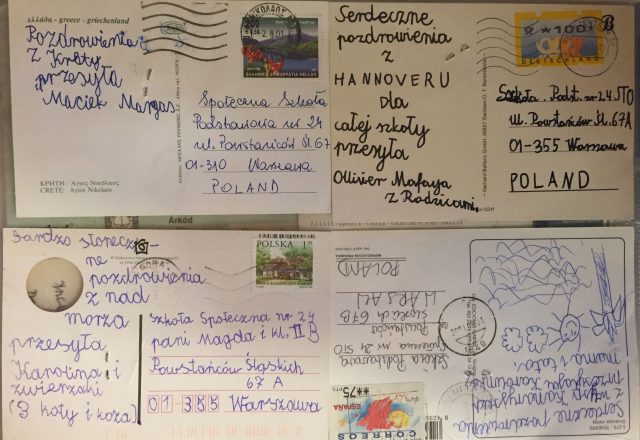 ελλάδα - greece - griechenland
Pozdrowienia
Z Krety
przesyła
Maciek Margas
ΚΡΗΤΗ: Άγιος Νικόλαος
CRETE: Agios Nikolaos
200
ΕΛΛΗΝΙΚΗ ΔΗΜΟΚΡΑΤΙΑ HELLAS
Społeczna Szkoła
Podstawowa nr 24
ul. Powstańców Śl. 67
01-310 Warszawa
POLAND
Serdeczne
pozdrowienia
z
HANNOVERU
dla
całej szkoły
przesyła
Ollivier Mafaya
z Rodzicami
*100
DEUTSCHLAND
B
Szkoła Podst. nr 24 STO
ul. Powstańców Śl. 67A
01-355 Warszawa
POLAND
Arkód
Bardzo słonecz-
ne
pozdrowienia
z nad
morza
przesyła
Karolina i
zwierzaki
(3 koty i koza)
POLSKA 1
GÓRA
Szkoła Społeczna nr 24
pani Magda i kl. II B
Powstańców Śląskich
67 A
01-355 Warszawa
Szkoła Podstawowa
nr 24 STO
Powstańców
Śląskich 67B
WARSAW
POLAND
**75
ESPAÑA
CORREOS
Serdeczne pozdrowienia
z Wysp Kanaryjskich
przesyła Karolinka
mama i tata!